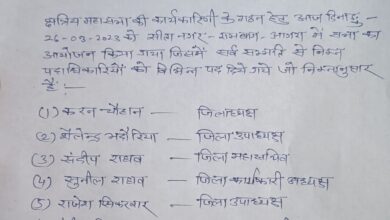 क्षत्रिय महासभा की कार्यकारिणी के गठन हेतु आज दिनाङ्क -
26-03-2023 को सीता नगर - रामबाग, आगरा में सभा का
आयोजन किया गया जिसमें सर्व सम्मति से निम्न
पदाधिकारियों को विभिन्न पद दिये गये जो निम्नानुसार
है: -
(1) करन चौहान - जिलाध्यक्ष
(2) शैलेन्द्र भदौरिया - जिला उपाध्यक्ष
(3) संदीप राघव - जिला महासचिव
(4) सुनील राघव - जिला कार्यकारी अध्यक्ष
(5) राजेश सिकरवार - जिला उपाध्यक्ष